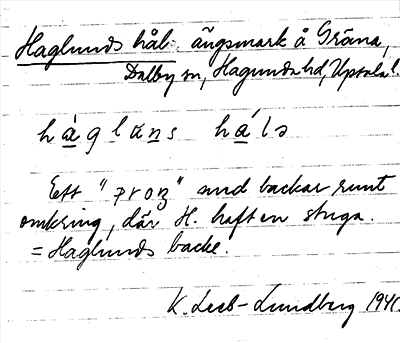 Haglunds hål: ängsmark å Gräna,
Dalby sn, Hagunda hd, Upsala l.
hàglu̲n̲s há̲ls
Ett "proz" med backar runt
omkring, där H. haft en stuga.
= Haglunds backe.
K. Leeb-Lundberg 1941.